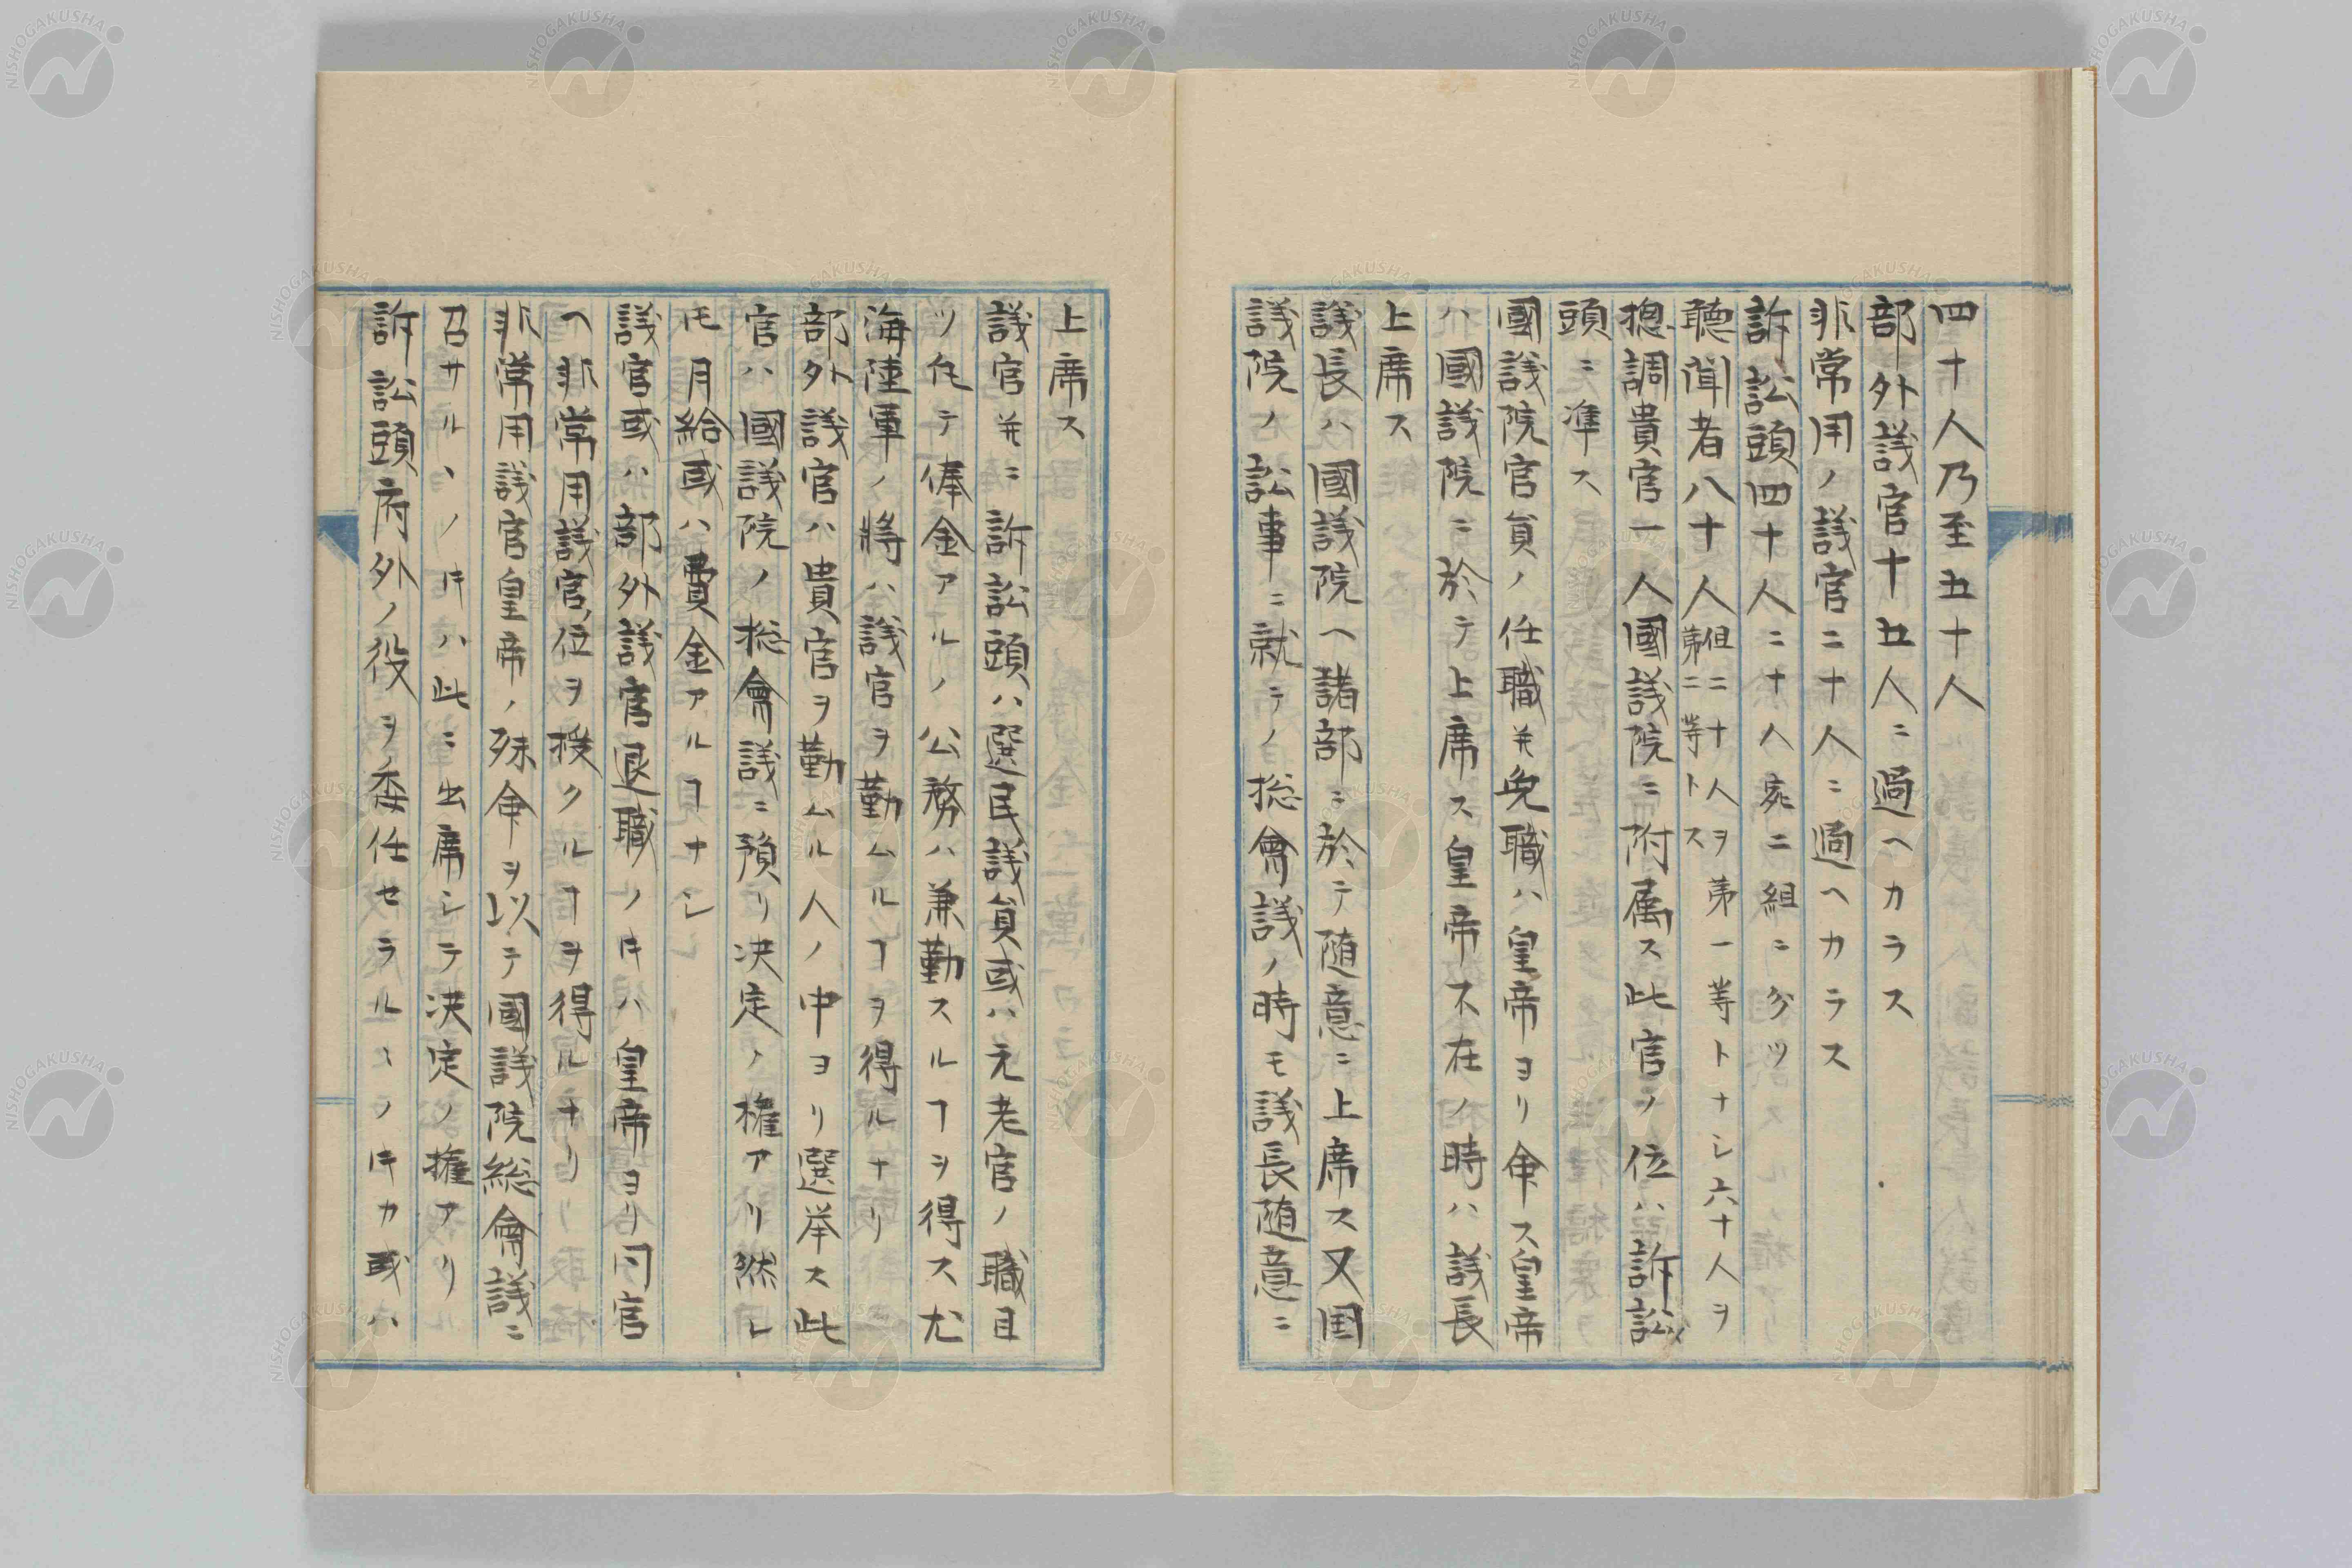 四十人乃至五十人
部外議官十五人ニ過ヘカラス
非常用ノ議官二十人ニ過ヘカラス
訴訟頭四十人二十人宛二組ニ分ツ
聴聞者八十人組二十人ヲ第一等トナシ六十人ヲ
第二等トス
摠調貴官一人國議院ニ附属ス此官ノ位ハ訴訟
頭ニ準ス
國議院官員ノ任職并免職ハ皇帝ヨリ命ス皇帝
ハ國議院ニ於テ上席ス皇帝不在ノ時ハ議長
上席ス
議長ハ國議院ヘ諸部ニ於テ随意ニ上席ス又国
議院ノ訟事ニ就テノ総會議ノ時モ議長随意ニ
上席ス
議官并ニ訴訟頭ハ選民議員或ハ元老官ノ職且
ツ他テ俸金アルノ公務ハ兼勤スルヿヲ得ス尤
海陸軍ノ将ハ議官ヲ勤ムルヿヲ得ルナリ
部外議官ハ貴官ヲ勤ムル人ノ中ヨリ選挙ス此
官ハ國議院ノ総會議ニ預リ决定ノ権アリ然レ
モ月給或ハ費金アルヿナシ
議官或ハ部外議官退職ノ𪜈ハ皇帝ヨリ同官
ヘ非常用議官ノ位ヲ授クルヿヲ得ルナリ
非常用議官皇帝ノ殊命ヲ以テ國議院総會議ニ
召サルヽノ𪜈ハ此ニ出席シテ决定ノ権アリ
訴訟頭府外ノ役ヲ委任セラルヽノ𪜈カ或ハ
NISHOGAKUSHA